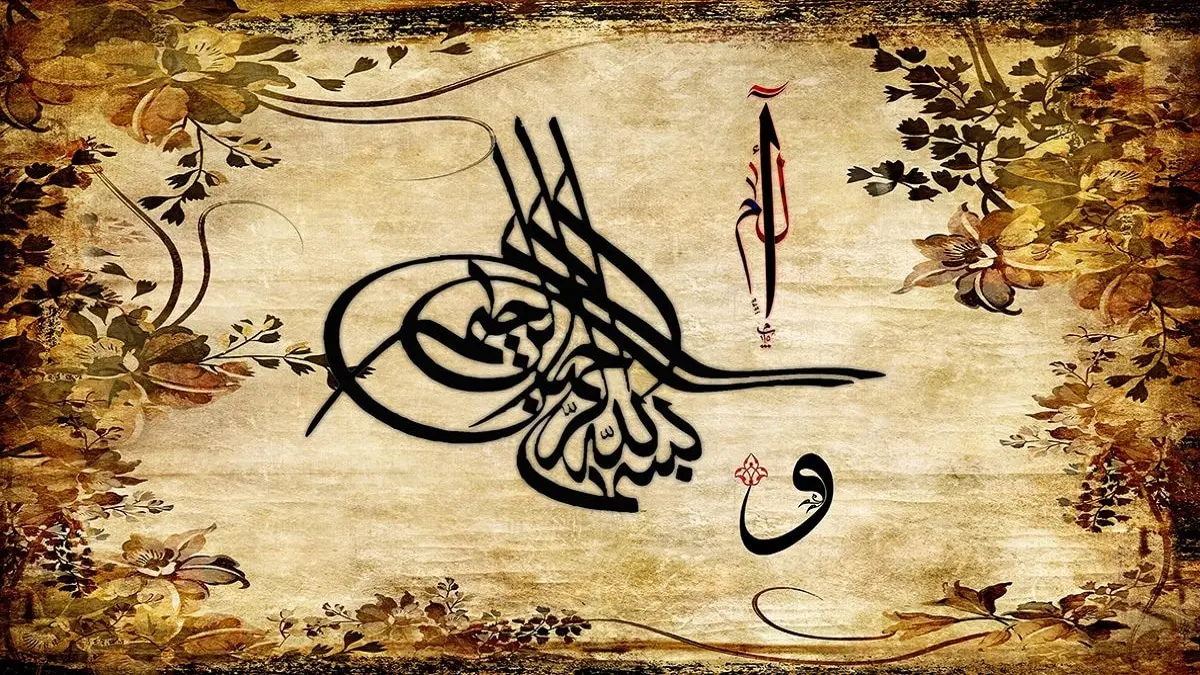 بسم الله الرحمن الرحيم
و